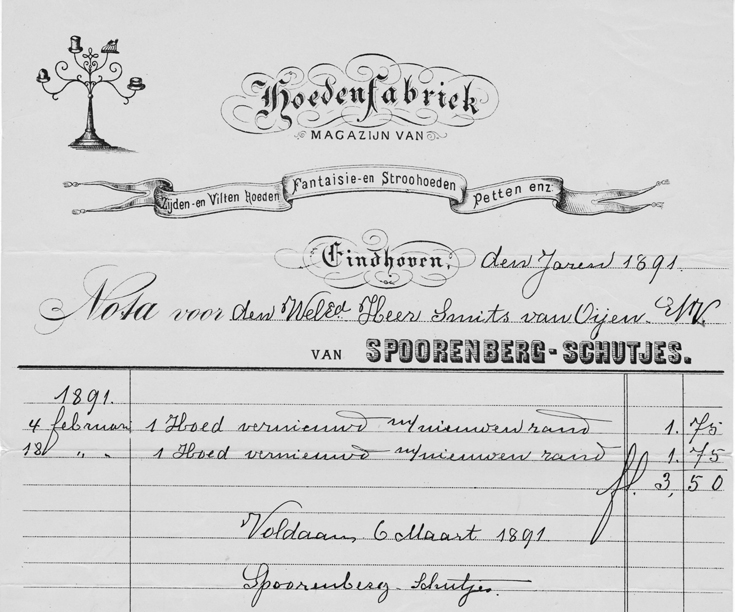 Hoedenfabriek
MAGAZIJN VAN
Zijden-en Vilten Hoeden Fantaisie-en Stroohoeden Petten enz.
Eindhoven, den Jaren 1891.
Nota voor den WelEd. Heer Smits van Oijen
VAN SPOORENBERG-SCHUTJES.
1891.
4 februari 1 Hoed vernieuwd m/nieuwen rand 1.75
18 " " 1 Hoed vernieuwd m/nieuwen rand 1.75
fl. 3,50
Voldaan, 6 Maart 1891
Spoorenberg-Schutjes.